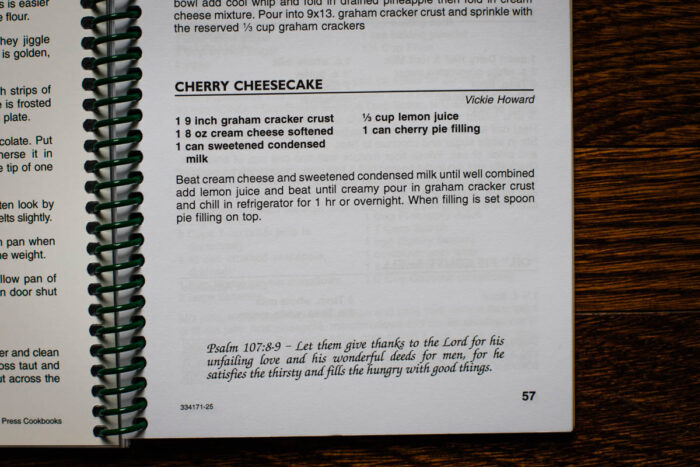 s is easier
e flour.
hey jiggle
is golden,
h strips of
e is frosted
plate.
colate. Put
nerse it in
e tip of one
ten look by
elts slightly.
n pan when
e weight.
llow pan of
n door shut
er and clean
oss taut and
ut across the
Press Cookbooks
bowl add cool whip and fold in drained pineapple then fold in cream
cheese mixture. Pour into 9x13. graham cracker crust and sprinkle with
the reserved ⅓ cup graham crackers
CHERRY CHEESECAKE
Vickie Howard
1 9 inch graham cracker crust
1 8 oz cream cheese softened
1 can sweetened condensed
milk
⅓ cup lemon juice
1 can cherry pie filling
Beat cream cheese and sweetened condensed milk until well combined
add lemon juice and beat until creamy pour in graham cracker crust
and chill in refrigerator for 1 hr or overnight. When filling is set spoon
pie filling on top.
Psalm 107:8-9 – Let them give thanks to the Lord for his
unfailing love and his wonderful deeds for men, for he
satisfies the thirsty and fills the hungry with good things.
334171-25
57